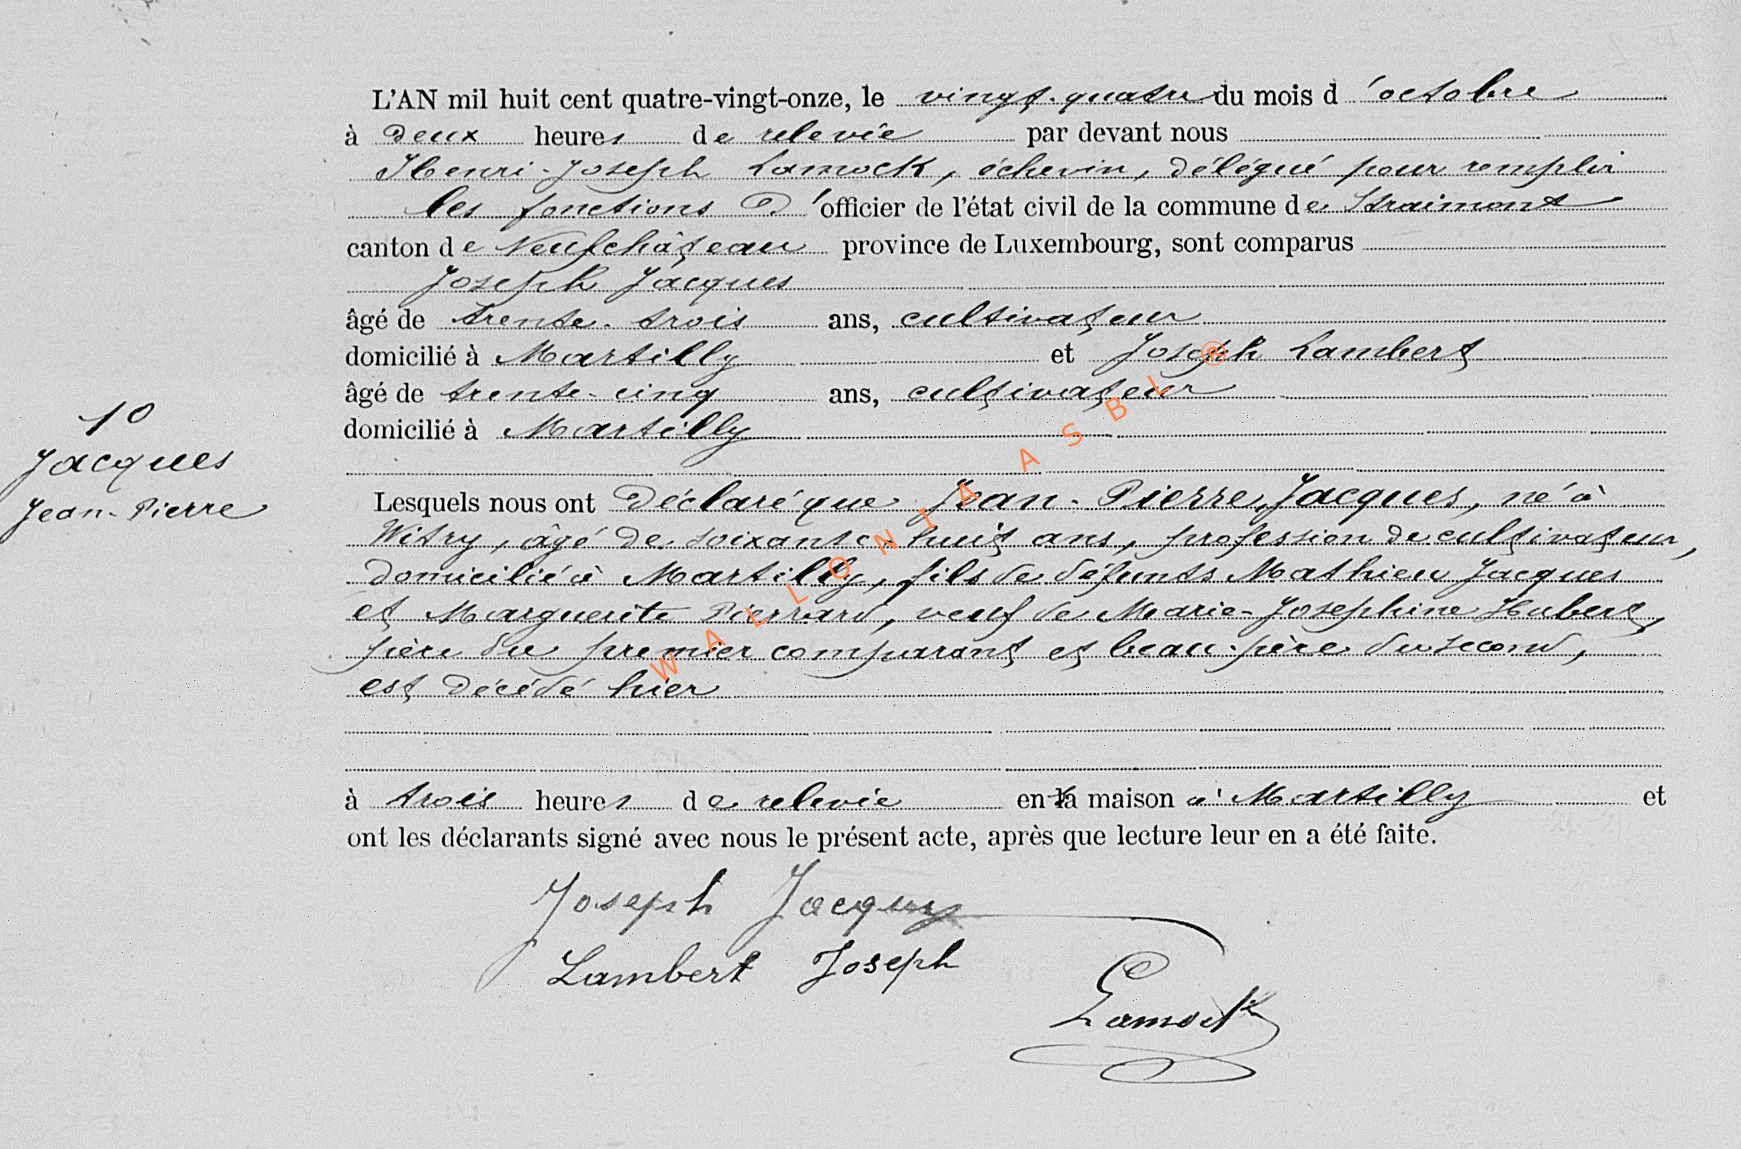 L'AN mil huit cent quatre-vingt-onze, le vingt-quatre du mois d'octobre
à Deux heures de relevée par devant nous
Henri-Joseph Lamock, échevin, délégué pour remplir
les fonctions D'officier de l'état civil de la commune de Straimont
canton de Neufchâteau province de Luxembourg, sont comparus
Joseph Jacques
âgé de trente-trois ans, cultivateur
domicilié à Martilly et Joseph Lambert
âgé de trente-cinq ans, cultivateur
domicilié à Martilly
10
Jacques
Jean-Pierre
Lesquels nous ont Déclaré que Jean-Pierre Jacques, né à
Witry, âgé de soixante-huit ans, profession de cultivateur,
domicilié à Martilly, fils de défunts Mathieu Jacques
et Marguerite Pierrard, veuf de Marie-Josephine Hubert,
père du premier comparant et beau-père du second,
est Décédé hier
à trois heures de relevée en la maison à Martilly et
ont les déclarants signé avec nous le présent acte, après que lecture leur en a été faite.
Joseph Jacques
Lambert Joseph
Lamock
WALLONIA ASBL ®